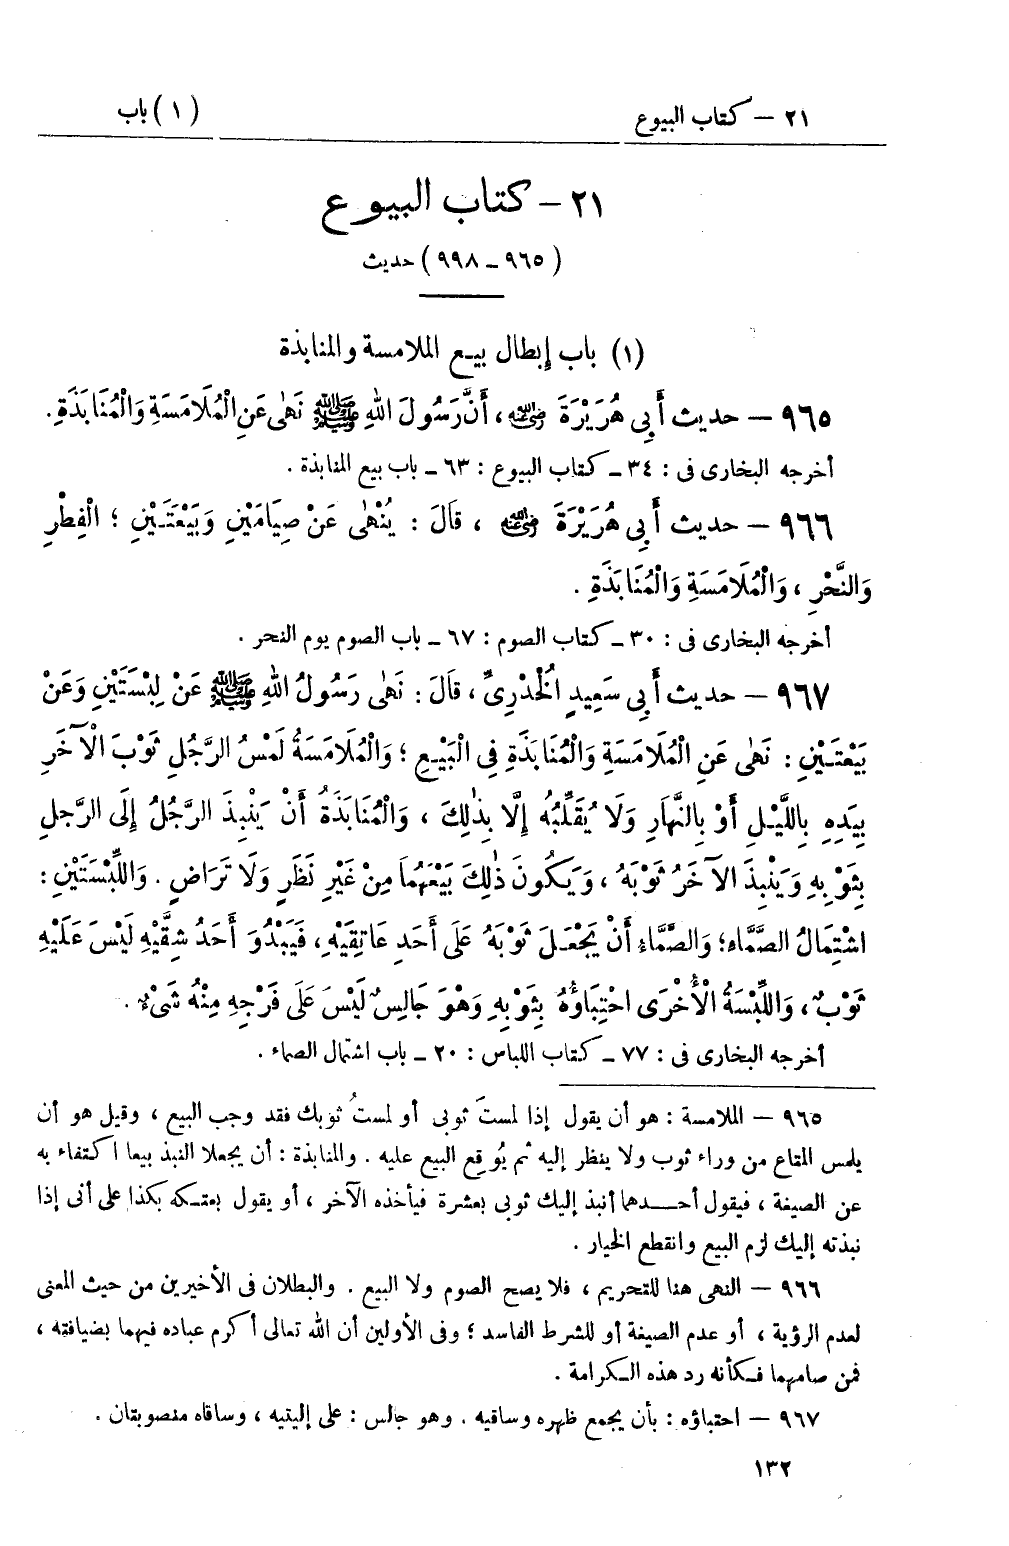 ٢١ – كتاب البيوع
(١) باب
٢١ – كتاب البيوع
(٩٦٥ – ٩٩٨) حديث
(١) باب إبطال بيع الملامسة والمنابذة
٩٦٥ – حديث أَبِي هُرَيْرَةَ رضي الله عنه، أَنَّ رَسُولَ اللهِ ﷺ نَهٰى عَنِ الْمُلَامَسَةِ وَالْمُنَابَذَةِ.
أخرجه البخارى فى : ٣٤ – كتاب البيوع : ٦٣ – باب بيع المنابذة .
٩٦٦ – حديث أَبِي هُرَيْرَةَ رضي الله عنه ، قَالَ : يُنْهٰى عَنْ صِيَامَيْنِ وَبَيْعَتَيْنِ ؛ الْفِطْرِ
وَالنَّحْرِ ، وَالْمُلَامَسَةِ وَالْمُنَابَذَةِ .
أخرجه البخارى فى : ٣٠ – كتاب الصوم : ٦٧ – باب الصوم يوم النحر .
٩٦٧ – حديث أَبِي سَعِيدٍ الْخُدْرِىِّ ، قَالَ : نَهٰى رَسُولُ اللهِ ﷺ عَنْ لِبْسَتَيْنِ وَعَنْ
بَيْعَتَيْنِ : نَهٰى عَنِ الْمُلَامَسَةِ وَالْمُنَابَذَةِ فِى الْبَيْعِ ؛ وَالْمُلَامَسَةُ لَمْسُ الرَّجُلِ ثَوْبَ الْآخَرِ
بِيَدِهِ بِاللَّيْلِ أَوْ بِالنَّهَارِ وَلَا يُقَلِّبُهُ إِلَّا بِذٰلِكَ ، وَالْمُنَابَذَةُ أَنْ يَنْبِذَ الرَّجُلُ إِلَى الرَّجلِ
بِثَوْبِهِ وَيَنْبِذَ الآخَرُ ثَوْبَهُ ، وَيَكُونَ ذٰلِكَ بَيْعَهُمَا مِنْ غَيْرِ نَظَرٍ وَلَا تَرَاضٍ . وَاللِّبْسَتَيْنِ :
اشْتِمَالُ الصَّمَّاءِ؛ وَالصَّمَّاءُ أَنْ يَجْعَلَ ثَوْبَهُ عَلَى أَحَدِ عَاتِقَيْهِ ، فَيَبْدُوَ أَحَدُ شِقَّيْهِ لَيْسَ عَلَيْهِ
ثَوْبٌ ، وَاللِّبْسَةُ الْأُخْرَى احْتِبَاؤُهُ بِثَوْبِهِ وَهْوَ جَالِسٌ لَيْسَ عَلَى فَرْجِهِ مِنْهُ شَىْءٌ .
أخرجه البخارى فى : ٧٧ – كتاب اللباس : ٢٠ – باب اشتمال الصماء .
٩٦٥ – الملامسة : هو أن يقول إذا لمستَ ثوبى أو لمستُ ثوبك فقد وجب البيع ، وقيل هو أن
يلمس المتاع من وراء ثوب ولا ينظر إليه ثم يُوقع البيع عليه . والمنابذة : أن يجعلا النبذ بيعا اكتفاء به
عن الصيغة ، فيقول أحدهما أنبذ إليك ثوبى بعشرة فيأخذه الآخر ، أو يقول بعتكه بكذا على أنى إذا
نبذته إليك لزم البيع وانقطع الخيار .
٩٦٦ – النهى هنا للتحريم ، فلا يصح الصوم ولا البيع . والبطلان فى الأخيرين من حيث المعنى
لعدم الرؤية ، أو عدم الصيغة أو للشرط الفاسد ؛ وفى الأولين أن الله تعالى أكرم عباده فيهما بضيافته ،
فمن صامهما فكأنه رد هذه الكرامة .
٩٦٧ – احتباؤه : بأن يجمع ظهره وساقيه . وهو جالس : على إليتيه ، وساقاه منصوبتان .
١٣٢